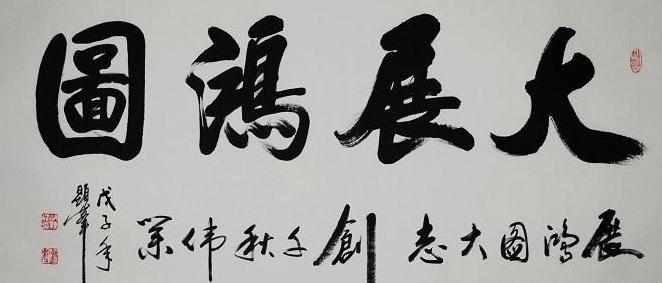 大展鴻圖
展鴻圖大志 創千秋伟業
戊子年